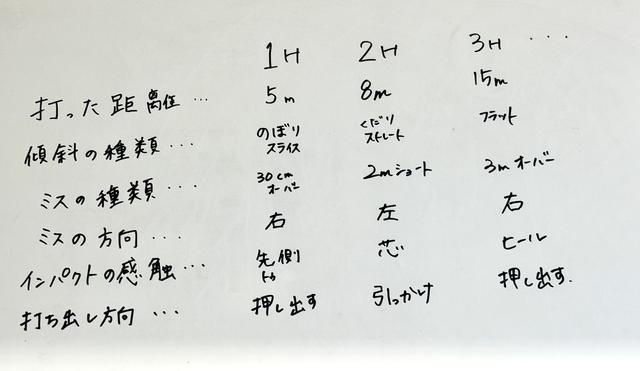 1H 2H 3H ...
打った距離 ... 5m 8m 15m
傾斜の種類 ... のぼり スライス くだり ストレート フラット
ミスの種類 ... 30cm オーバー 2mショート 3mオーバー
ミスの方向 ... 右 左 右
インパクトの感触 ... 先側 トゥ 芯 ヒール
打ち出し方向 ... 押し出す 引っかけ 押し出す.